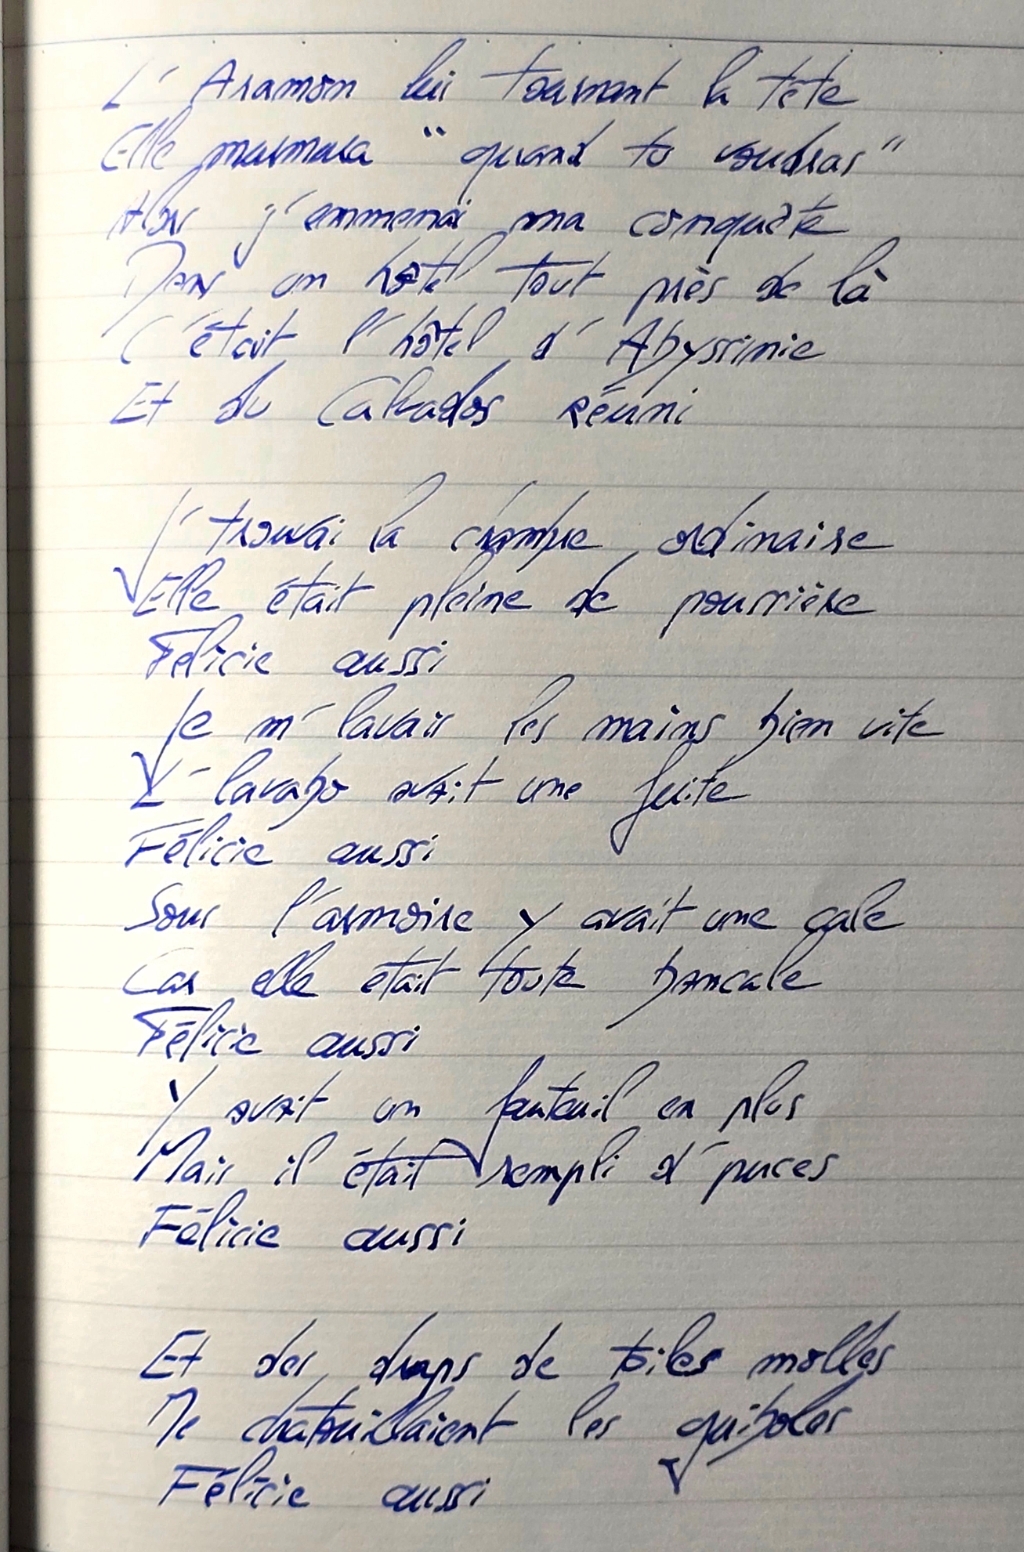 L'Aramon lui tournant la tête
Elle murmura "quand tu voudras"
Alors j'emmenai ma conquête
Dans un hôtel tout près de là
C'était l'hôtel d'Abyssinie
Et du Calvados réuni
J'trouvai la chambre ordinaire
Elle était pleine de poussière
Félicie aussi
Je m'lavais les mains bien vite
L'lavabo avait une fuite
Félicie aussi
Sous l'armoire y avait une cale
Car elle était toute bancale
Félicie aussi
Y avait un fauteuil en plus
Mais il était rempli d'puces
Félicie aussi
Et des draps de toiles molles
Me chatouillaient les guiboles
Félicie aussi